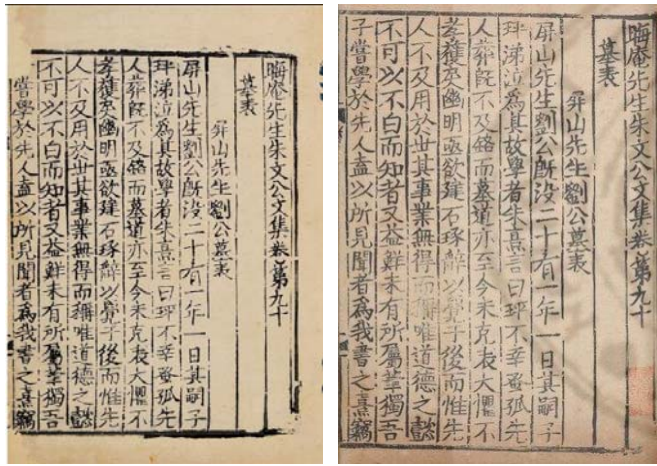 晦庵先生朱文公文集卷第九十
墓表
屏山先生劉公墓表
屏山先生劉公旣没二十有一年一日其嗣子
玶涕泣爲其故學者朱熹言曰玶不幸蚤孤先
人葬旣不及銘而墓道亦至今未克表大懼不
孝獲戾幽明亟欲建石琢辭以覺于後而惟先
人不及用於丗其事業無得而稱唯道德之懿
不可以不白而知者又益鮮未有所屬筆獨吾
嘗學於先人盍以所見聞者爲我書之熹竊
晦庵先生朱文公文集卷第九十
墓表
屏山先生劉公墓表
屏山先生劉公旣没二十有一年一日其嗣子
玶涕泣爲其故學者朱熹言曰玶不幸蚤孤先
人葬旣不及銘而墓道亦至今未克表大懼不
孝獲戾幽明亟欲建石琢辭以覺于後而惟先
人不及用於丗其事業無得而稱唯道德之懿
不可以不白而知者又益鮮未有所屬筆獨吾
子嘗學於先人盍以所見聞者爲我書之熹竊